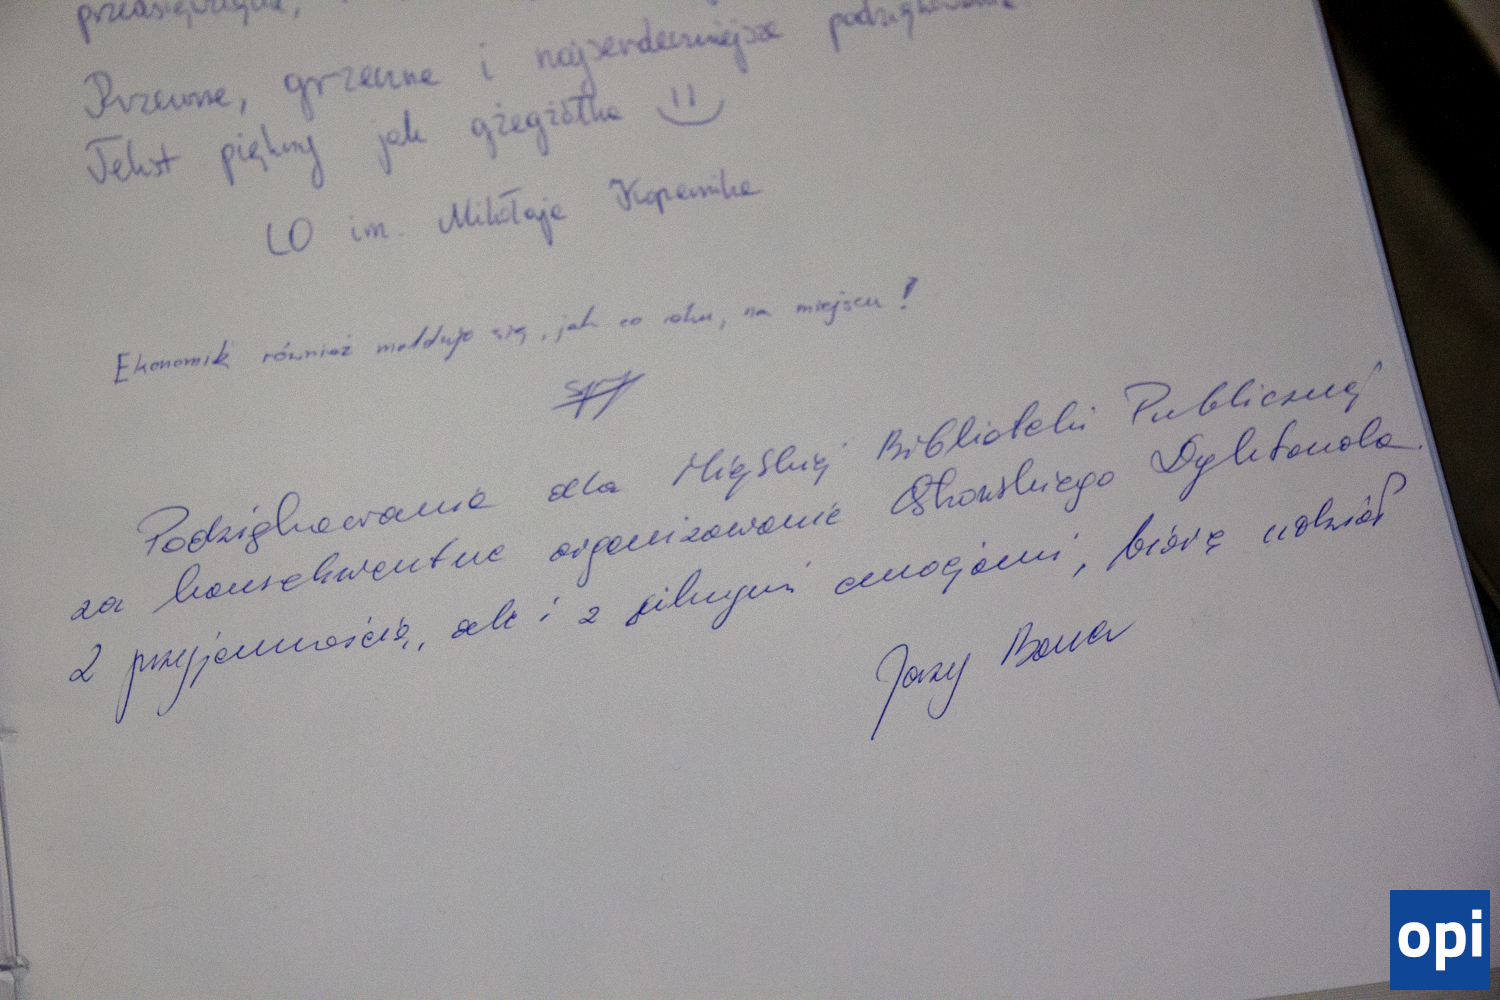 przedsięwzięcie,
Rzewne, grzeczne i najserdeczniejsze podziękowania
Tekst piękny jak gżegżółka
LO im. Mikołaja Kopernika
Ekonomik również melduje się, jak co roku, na miejscu!
Podziękowania dla Miejskiej Biblioteki Publicznej
za konsekwentne organizowanie Ostrowskiego Dyktanda.
Z przyjemnością, ale i z silnymi emocjami, biorę udział
Jerzy
opi